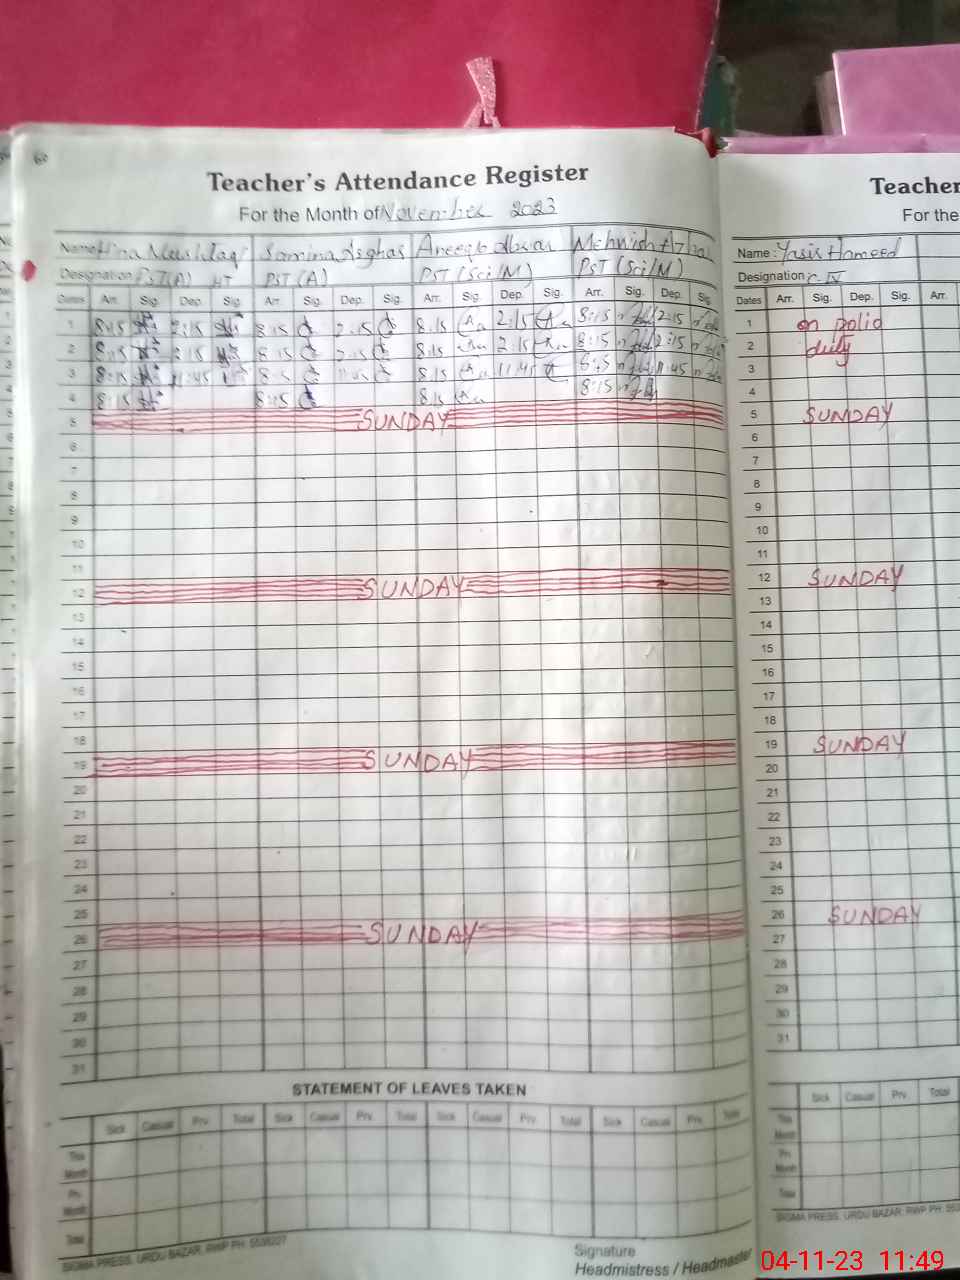 Teacher's Attendance Register
For the Month of November 2023
Name Hina
Samina Asghar
Aneeqa Absar
Mehwish
Designation PST(A) HT
PST (A)
PST (Sci/M)
PST (Sci/M)
Dates Arr. Sig. Dep. Sig. Arr. Sig. Dep. Sig. Arr. Sig. Dep. Sig. Arr. Sig. Dep. Sig.
1 8:15 2:15 8:15 2:15 8:15 2:15 8:15 2:15
2 8:15 2:15 8:15 2:15 8:15 2:15 8:15 2:15
3 8:15 11:45 8:15 11:45 8:15 11:45 8:15 11:45
4 8:15 8:15 8:15 8:15
5 SUNDAY
6
7
8
9
10
11
12 SUNDAY
13
14
15
16
17
18
19 SUNDAY
20
21
22
23
24
25
26 SUNDAY
27
28
29
30
31
STATEMENT OF LEAVES TAKEN
Sick Casual Prv. Total Sick Casual Prv. Total Sick Casual Prv. Total Sick Casual Prv. Total
This Month
Prv. Month
Total
SIGMA PRESS, URDU BAZAR, RWP PH:
Signature
Headmistress / Headmaster
Teacher
For the
Name: Yasir Hameed
Designation C-IV
Dates Arr. Sig. Dep. Sig. Arr.
1 on polio
2 duty
3
4
5 SUNDAY
6
7
8
9
10
11
12 SUNDAY
13
14
15
16
17
18
19 SUNDAY
20
21
22
23
24
25
26 SUNDAY
27
28
29
30
31
Sick Casual Prv. Total
This Month
Prv. Month
Total
SIGMA PRESS, URDU BAZAR, RWP PH:
04-11-23 11:49